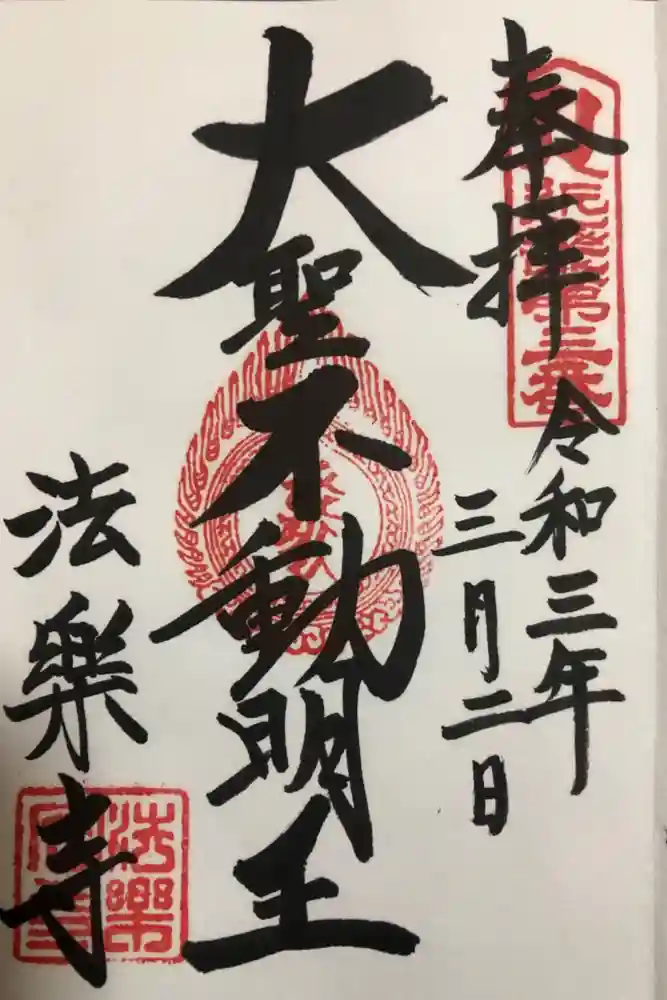 奉拝
令和三年
三月二日
大聖不動明王
法樂寺